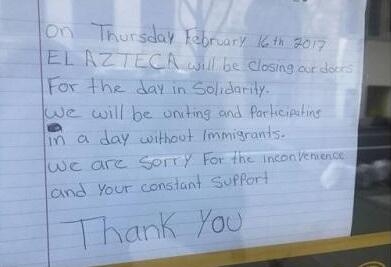 On Thursday February 16th 2017
EL AZTECA will be closing our doors
For the day in Solidarity.
We will be uniting and Participating
in a day without Immigrants.
We are Sorry For the inconvenience
and Your constant Support
Thank You